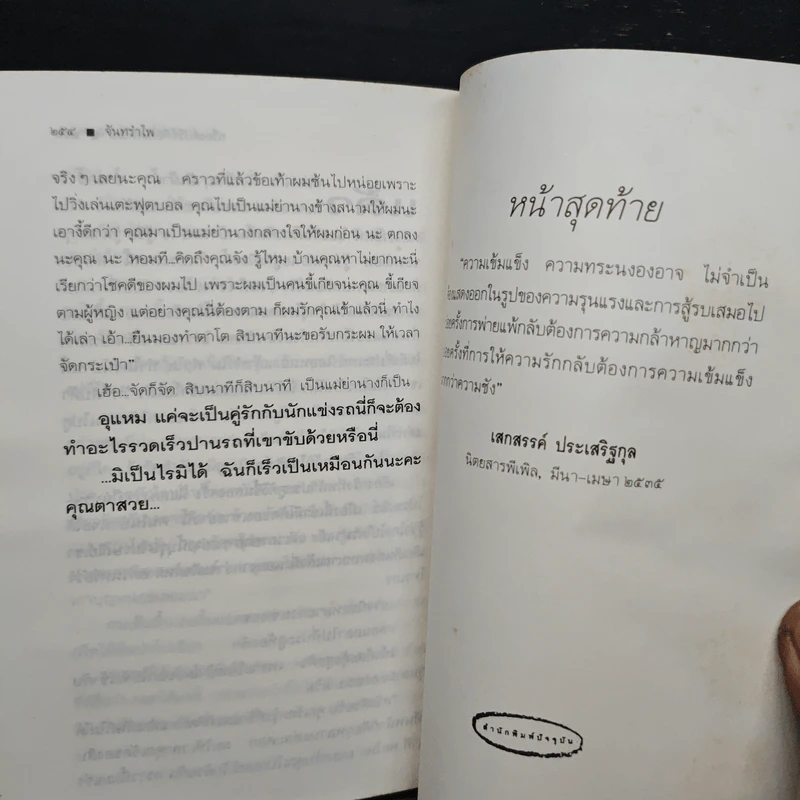 ๒๕๔ ■ จันทรำไพ
จริง ๆ เลยนะคุณ คราวที่แล้วข้อเท้าผมซ้นไปหน่อยเพราะ
ไปวิ่งเล่นเตะฟุตบอล คุณไปเป็นแม่ย่านางข้างสนามให้ผมนะ
เอางี้ดีกว่า คุณมาเป็นแม่ย่านางกลางใจให้ผมก่อน นะ ตกลง
นะคุณ นะ หอมที...คิดถึงคุณจัง รู้ไหม บ้านคุณหาไม่ยากนะนี่
เรียกว่าโชคดีของผมไป เพราะผมเป็นคนขี้เกียจน่ะคุณ ขี้เกียจ
ตามผู้หญิง แต่อย่างคุณนี่ต้องตาม ก็ผมรักคุณเข้าแล้วนี่ ทำไง
ได้เล่า เอ้า...ยืนมองทำตาโต สิบนาทีนะขอรับกระผม ให้เวลา
จัดกระเป๋า”
เฮ้อ...จัดก็จัด สิบนาทีก็สิบนาที เป็นแม่ย่านางก็เป็น
อุแหม แค่จะเป็นคู่รักกับนักแข่งรถนี่ก็จะต้อง
ทำอะไรรวดเร็วปานรถที่เขาขับด้วยหรือนี่
...มิเป็นไรมิได้ ฉันก็เร็วเป็นเหมือนกันนะคะ
คุณตาสวย...
หน้าสุดท้าย
“ความเข้มแข็ง ความทระนงองอาจ ไม่จำเป็น
แสดงออกในรูปของความรุนแรงและการสู้รบเสมอไป
ครั้งการพ่ายแพ้กลับต้องการความกล้าหาญมากกว่า
ครั้งที่การให้ความรักกลับต้องการความเข้มแข็ง
กว่าความชัง”
เสกสรรค์ ประเสริฐกุล
นิตยสารพีเพิล, มีนา-เมษา ๒๕๓๕
สำนักพิมพ์ปัจจุบัน